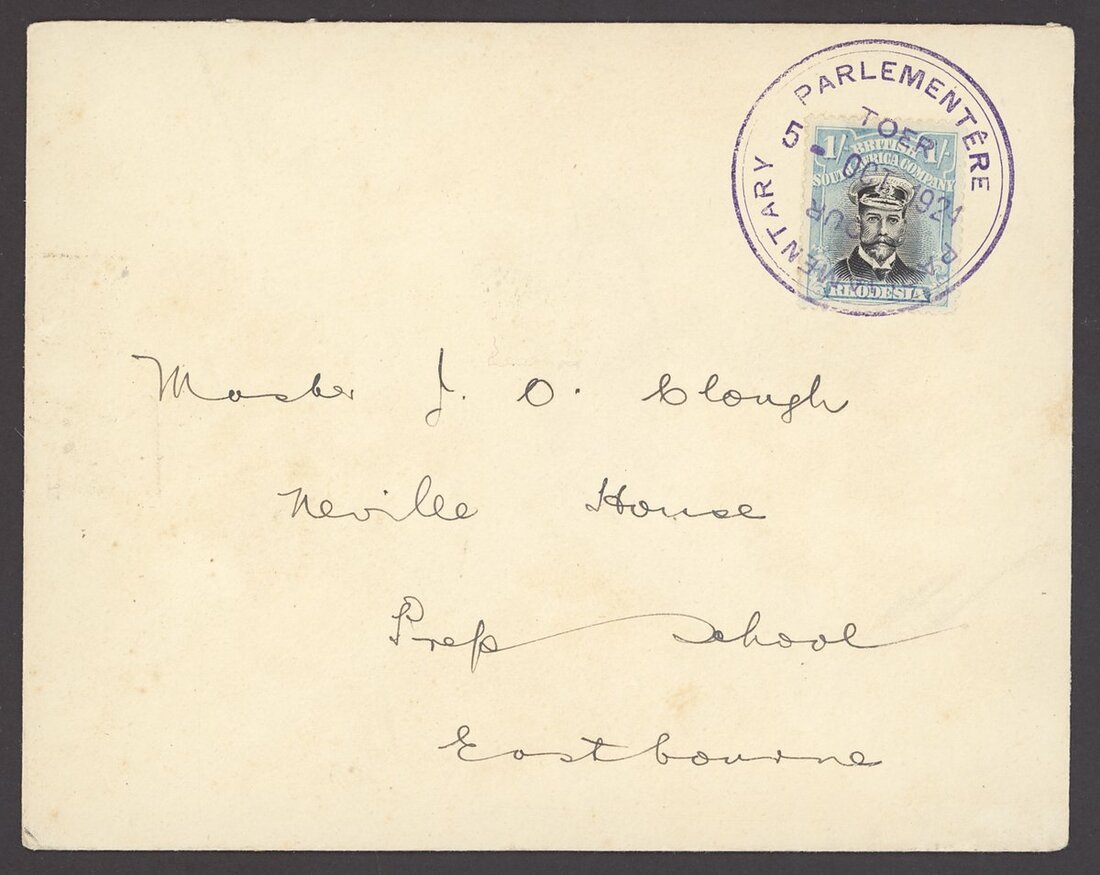 PARLEMENTÊRE
TOER
5 - OCT 1924
PARLIAMENTARY
TOUR
1/- 1/-
BRITISH
SOUTH AFRICA COMPANY
RHODESIA
Master J. O. Clough
Neville House
Prep School
Eastbourne